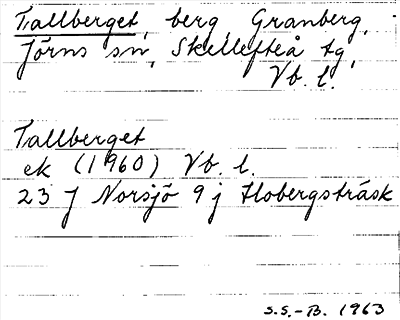 Tallberget, berg, Granberg,
Jörns sn, Skellefteå tg,
Vb. l.
Tallberget
ek (1960) Vb. l.
23 J Norsjö 9 j Hobergsträsk
S.S.-B. 1963